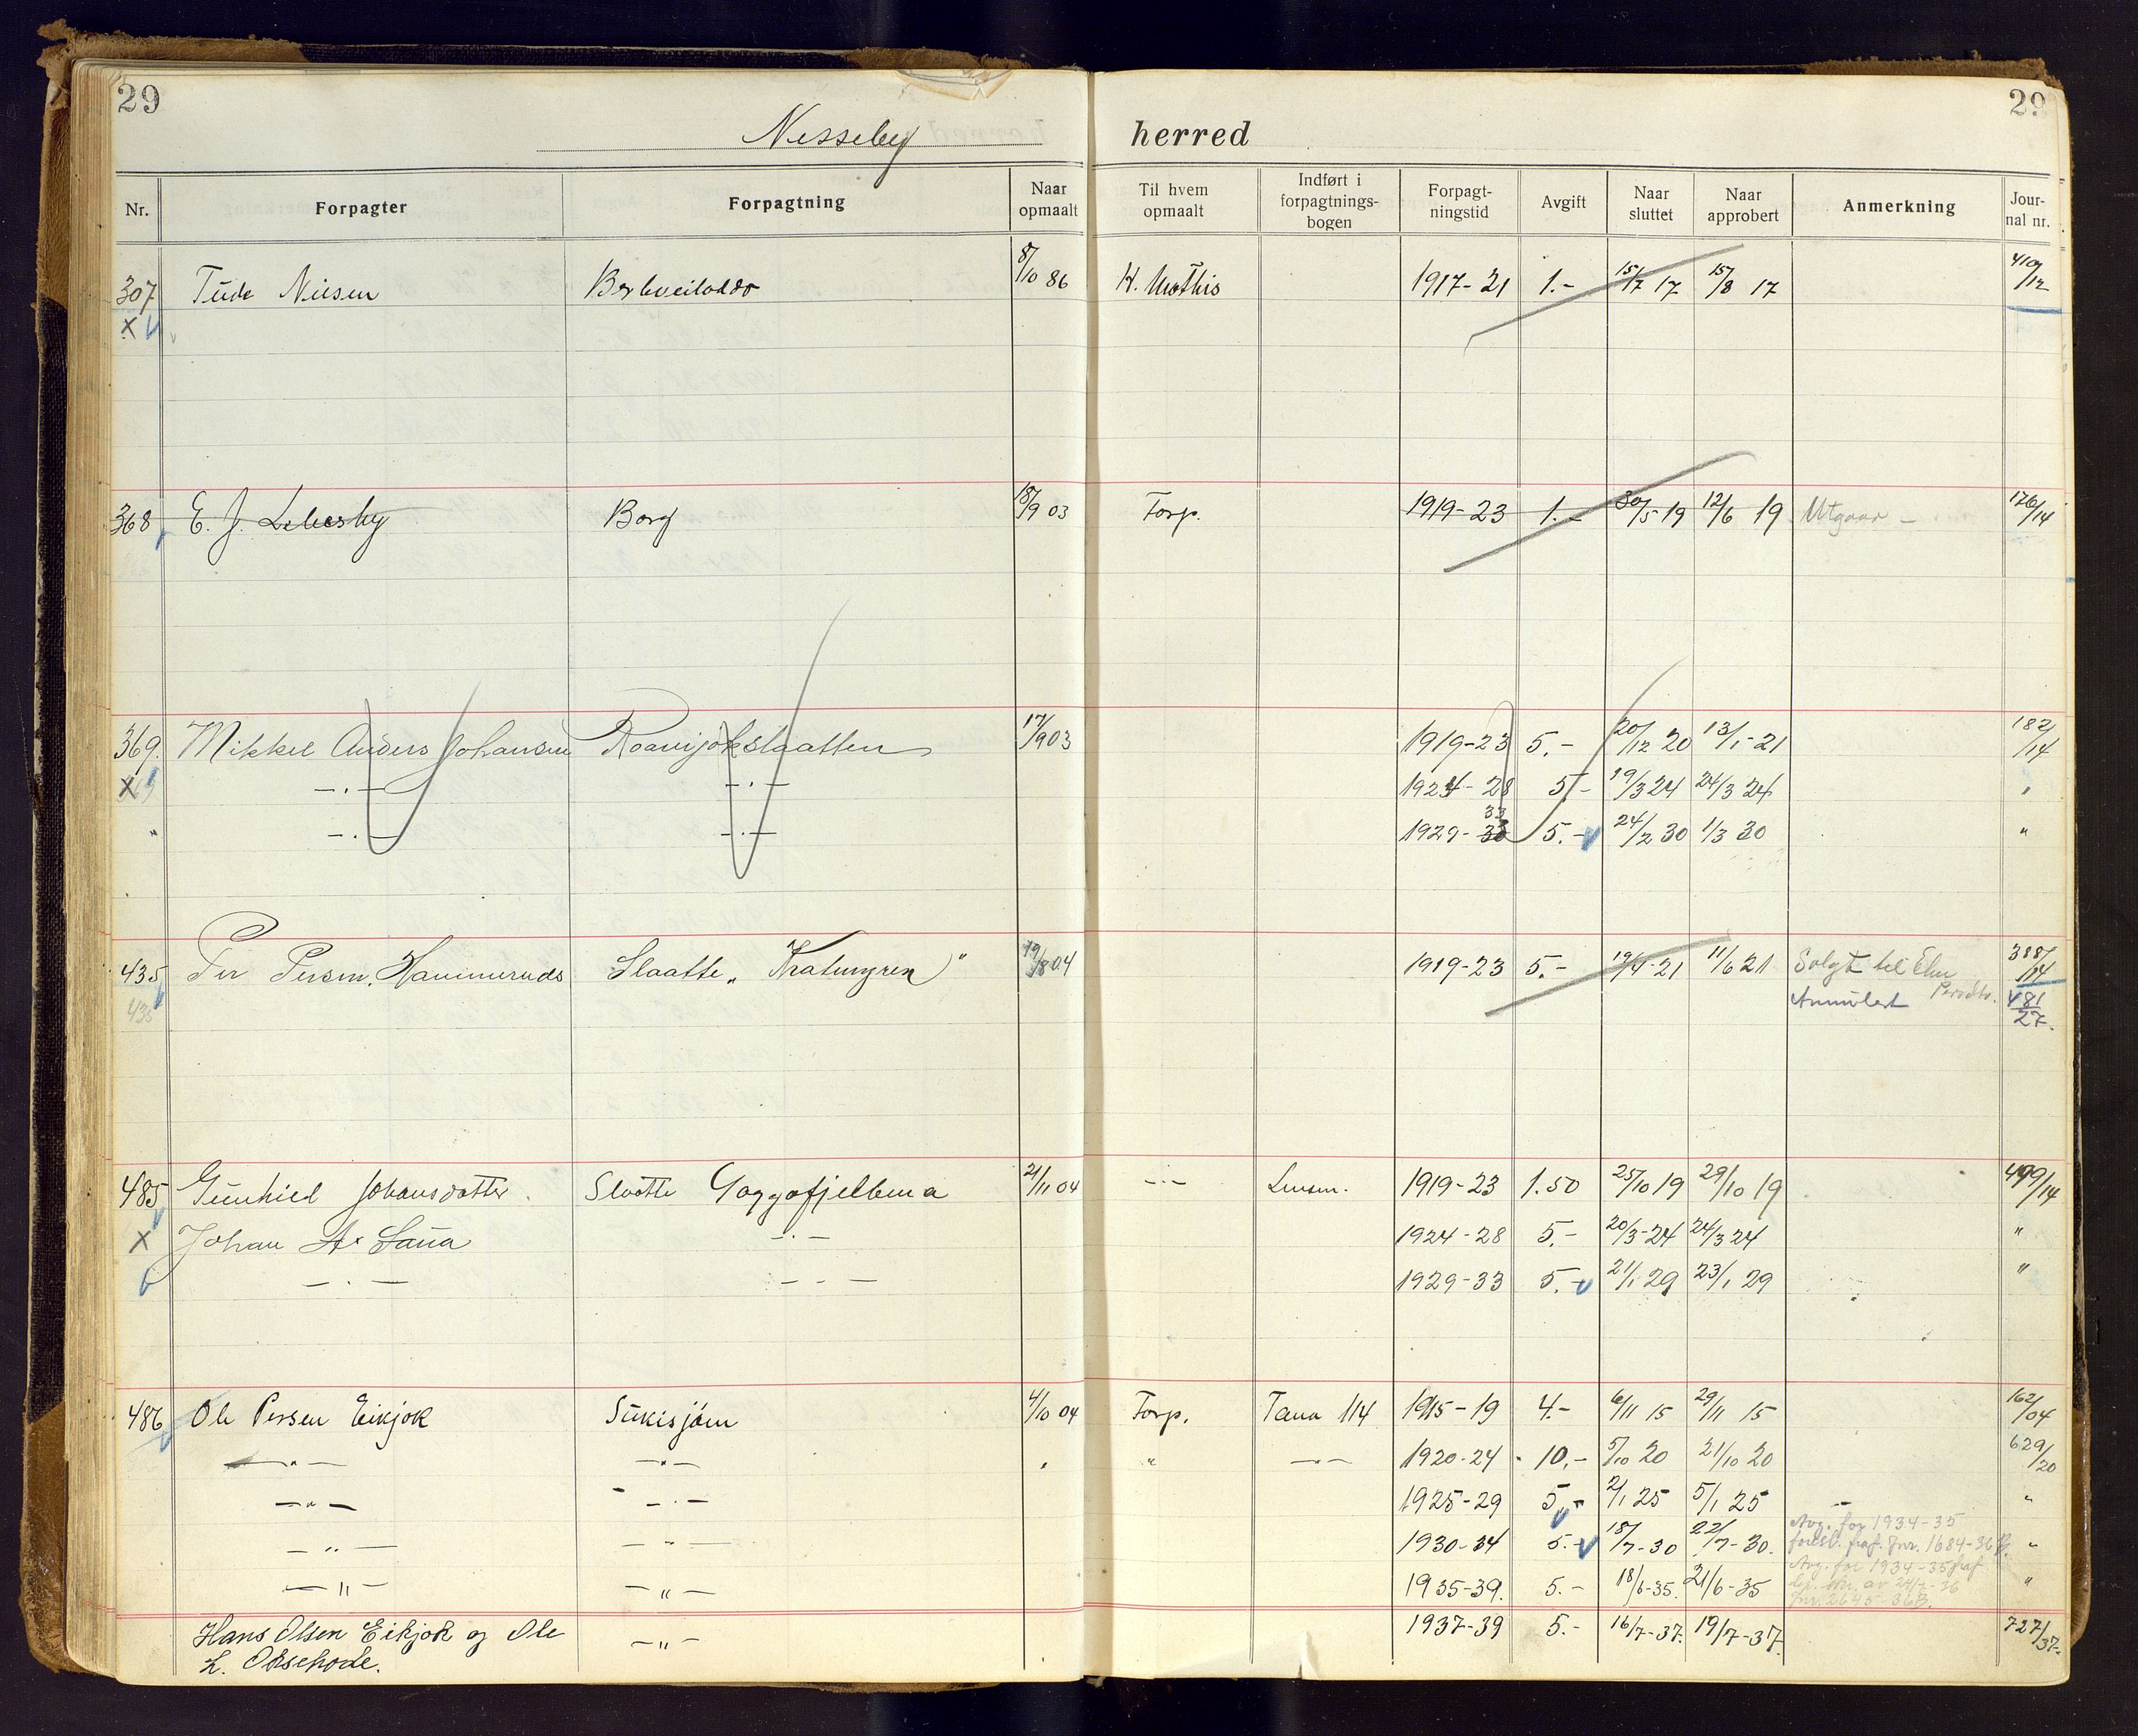 29
29
Nesseby herred
Nr. Forpagter Forpagtning Naar opmaalt Til hvem opmaalt Indført i forpagtnings-bogen Forpagt-ningstid Avgift Naar sluttet Naar approbert Anmerkning Jour-nal nr.
307 Nilsen 8/10 86 H. Mathis 1917-21 1.- 15/7 17 15/8 17 410/12
X
368 E. J. Lebesby Borg 18/9 03 Forp. 1919-23 1.- 30/5 19 12/6 19 Utgaar - 176/14
369. Mikkel Anders Johansen Roavijokslaatten 17/9 03 1919-23 5.- 20/12 20 13/1-21 182/14
X -.- -.- 1924-28 5.- 19/3 24 24/3 24 "
" -.- -.- 1929-33 5.- 24/2 30 1/3 30 "
435 Per Persen, Slaatte 19/8 04 1919-23 5.- 19/4-21 11/6 21 Solgt til Elen Persdtr. 388/14
435 Annulert 481/27.
485 Gunhild Johansdatter. Slaatte 21/11 04 -"- Lensm. 1919-23 1.50 25/10 19 29/10 19 499/14
X Johan A. -.- 1924-28 5.- 20/3-24 24/3 24 "
-.- -.- 1929-33 5.- 21/1 29 23/1 29 "
486 Ole Persen Eikjok Sukisjøen 4/10 04 Forp. Tana 114 1915-19 4.- 6/11 15 29/11 15 162/04
-"- -"- " " -"- 1920-24 10.- 5/10 20 21/10 20 629/20
-"- -.- 1925-29 5.- 2/1 25 5/1 25 "
-"- -"- 1930-34 5.- 18/7-30 22/7-30. Avg. for 1934-35 Jnr. 1684-36 B. "
-"- -"- 1935-39. 5.- 18/6-35. 21/6-35 Avg. for 1934-35 Jnr. 2645-36B. "
Hans Olsen Eikjok og Ole -"- 1937-39 5.- 16/7-37. 19/7-37. 727/37.
L. Oksehode.